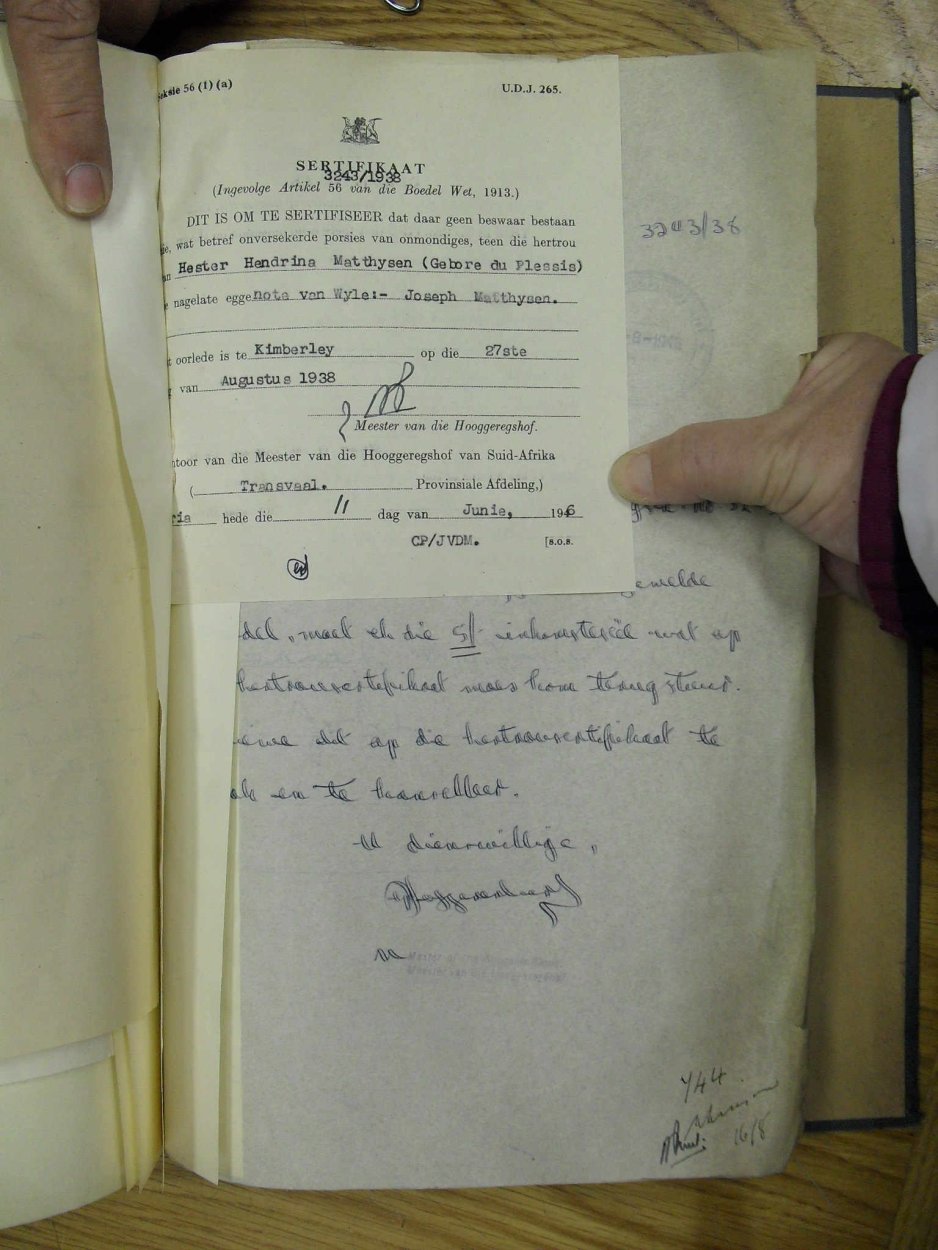 Seksie 56 (1) (a)
U.D.J. 265.
SERTIFIKAAT
3243/1938
(Ingevolge Artikel 56 van die Boedel Wet, 1913.)
DIT IS OM TE SERTIFISEER dat daar geen beswaar bestaan
nie, wat betref onversekerde porsies van onmondiges, teen die hertrou
an Hester Hendrina Matthysen (Gebore du Plessis)
e nagelate eggenote van Wyle:- Joseph Matthysen.
t oorlede is te Kimberley op die 27ste
g van Augustus 1938
Meester van die Hooggeregshof.
ntoor van die Meester van die Hooggeregshof van Suid-Afrika
( Transvaal. Provinsiale Afdeling,)
ria hede die 11 dag van Junie, 1946
CP/JVDM. [S.O.S.
3243/38
gemelde
del, moet ek die 5/- inkomsteseël wat op
hertrousertifikaat moes kom terugstuur.
ewe dit op die hertrousertifikaat te
ak en te kanselleer.
U dienswillige,
Master of the Supreme Court
Meester van die Hooggeregshof
744
16/8